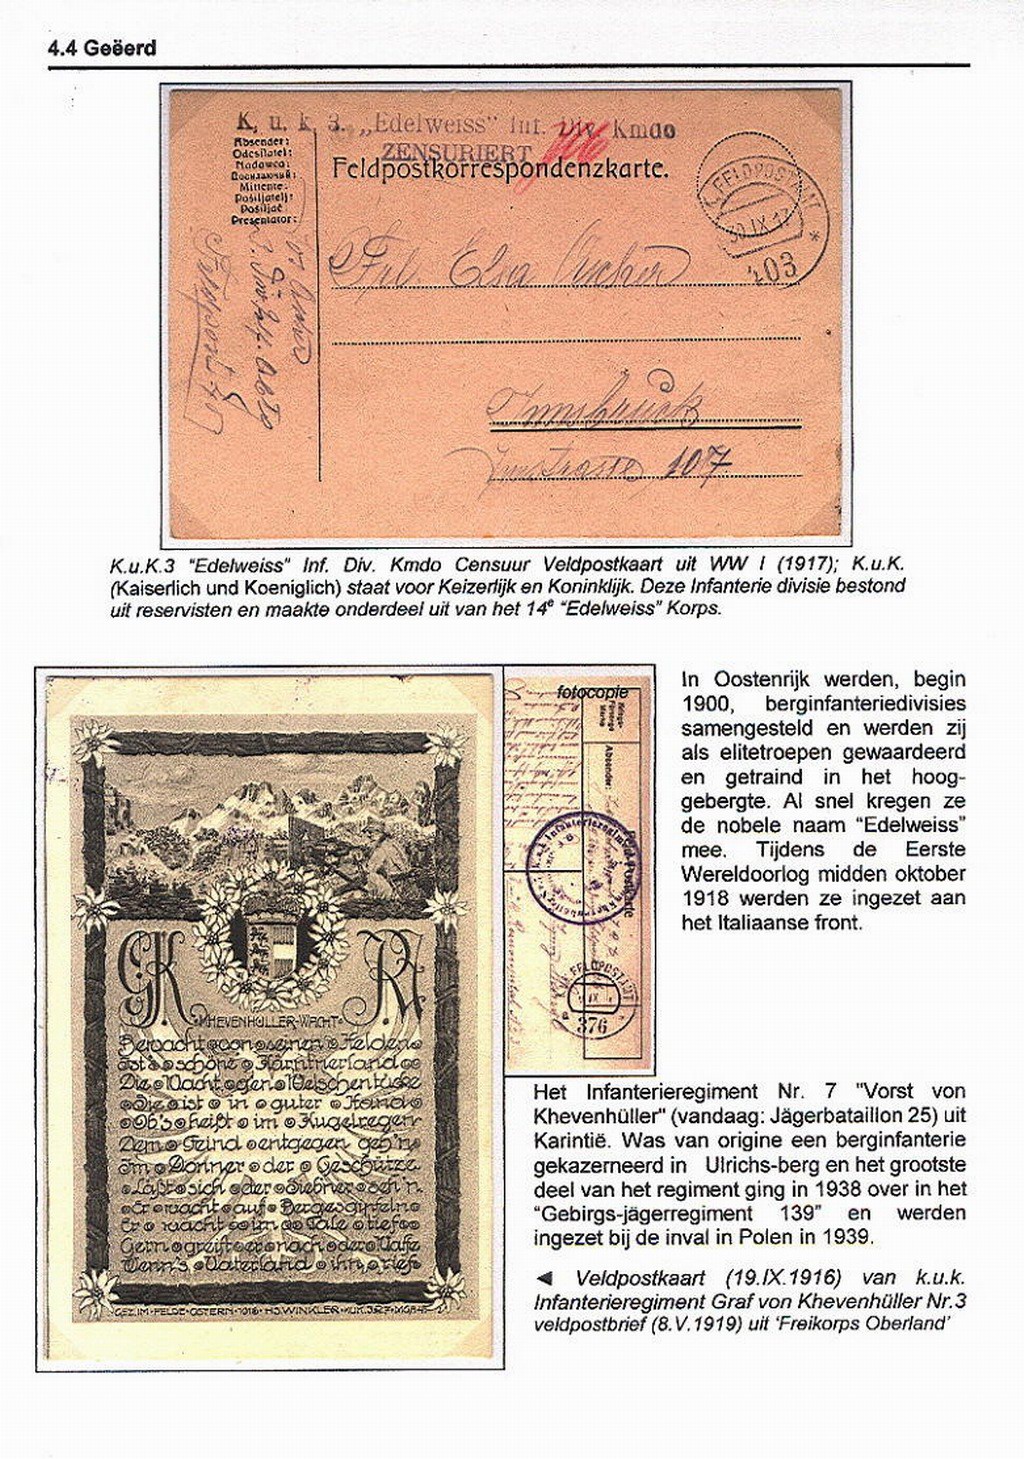 4.4 Geëerd
K. u. k. 3. „Edelweiss" Inf. Div. Kmdo
ZENSURIERT
Feldpostkorrespondenzkarte.
Absender:
Odesílatel:
Nadawca:
Mittente:
Pošiljatelj:
Pošiljač
Presentator:
K.u.k. FELDPOSTAMT
30.IX.17
*
403
Frl. Elsa
Innsbruck
Innstrasse 107
K.u.K.3 "Edelweiss" Inf. Div. Kmdo Censuur Veldpostkaart uit WW I (1917); K.u.K.
(Kaiserlich und Koeniglich) staat voor Keizerlijk en Koninklijk. Deze Infanterie divisie bestond
uit reservisten en maakte onderdeel uit van het 14e "Edelweiss" Korps.
fotocopie
Absender:
FELDPOSTAMT
376
KHEVENHÜLLER-WACHT
Bewacht von seinen Helden
Ist's schöne Kärntnerland
Die Wacht gen Welschentücke
Sie ist in guter Hand
Ob's heißt im Kugelregen
Dem Feind entgegen geh'n
Im Donner der Geschütze
Läßt sich der Siebner seh'n
Er wacht auf Bergesgipfeln
Er wacht im Tale tief
Gern greift er nach der Waffe
Wenn's Vaterland ihn rief
GEZ. IM FELDE OSTERN 1916 HS. WINKLER
In Oostenrijk werden, begin
1900, berginfanteriedivisies
samengesteld en werden zij
als elitetroepen gewaardeerd
en getraind in het hoog-
gebergte. Al snel kregen ze
de nobele naam "Edelweiss"
mee. Tijdens de Eerste
Wereldoorlog midden oktober
1918 werden ze ingezet aan
het Italiaanse front.
Het Infanterieregiment Nr. 7 "Vorst von
Khevenhüller" (vandaag: Jägerbataillon 25) uit
Karintië. Was van origine een berginfanterie
gekazerneerd in Ulrichs-berg en het grootste
deel van het regiment ging in 1938 over in het
"Gebirgs-jägerregiment 139" en werden
ingezet bij de inval in Polen in 1939.
◄ Veldpostkaart (19.IX.1916) van k.u.k.
Infanterieregiment Graf von Khevenhüller Nr.3
veldpostbrief (8.V.1919) uit 'Freikorps Oberland'